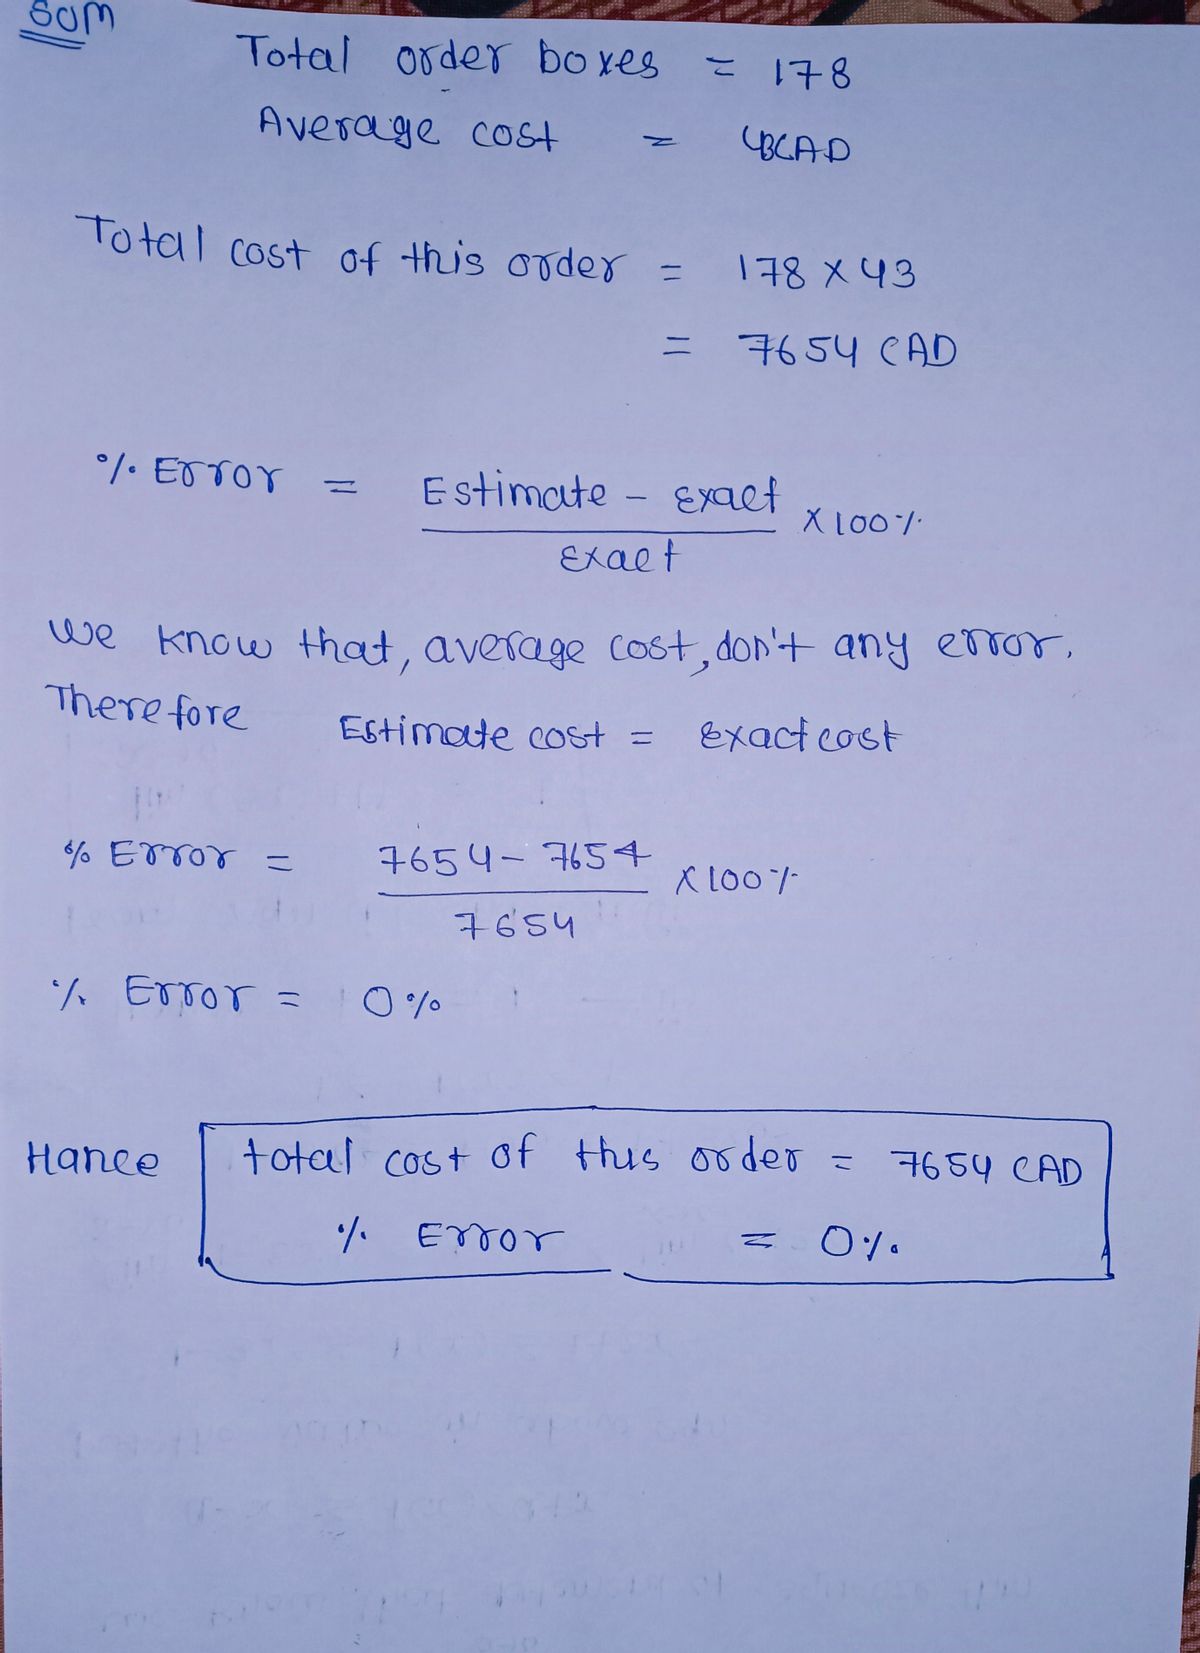 Som
Total order boxes = 178
Average cost = 43CAD
Total cost of this order = 178 x 43
= 7654 CAD
% Error = Estimate - Exact
x 100%
Exact
We know that, average cost, don't any error.
Therefore Estimate cost = Exact cost
% Error = 7654 - 7654
x 100%
7654
% Error = 0%
Hance total cost of this order = 7654 CAD
% Error = 0%